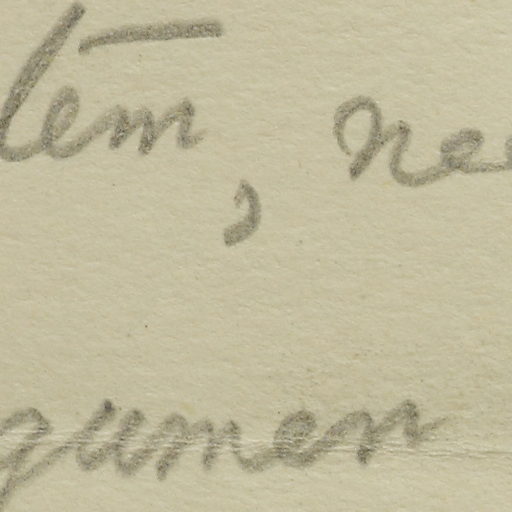 tem, nee
gumen